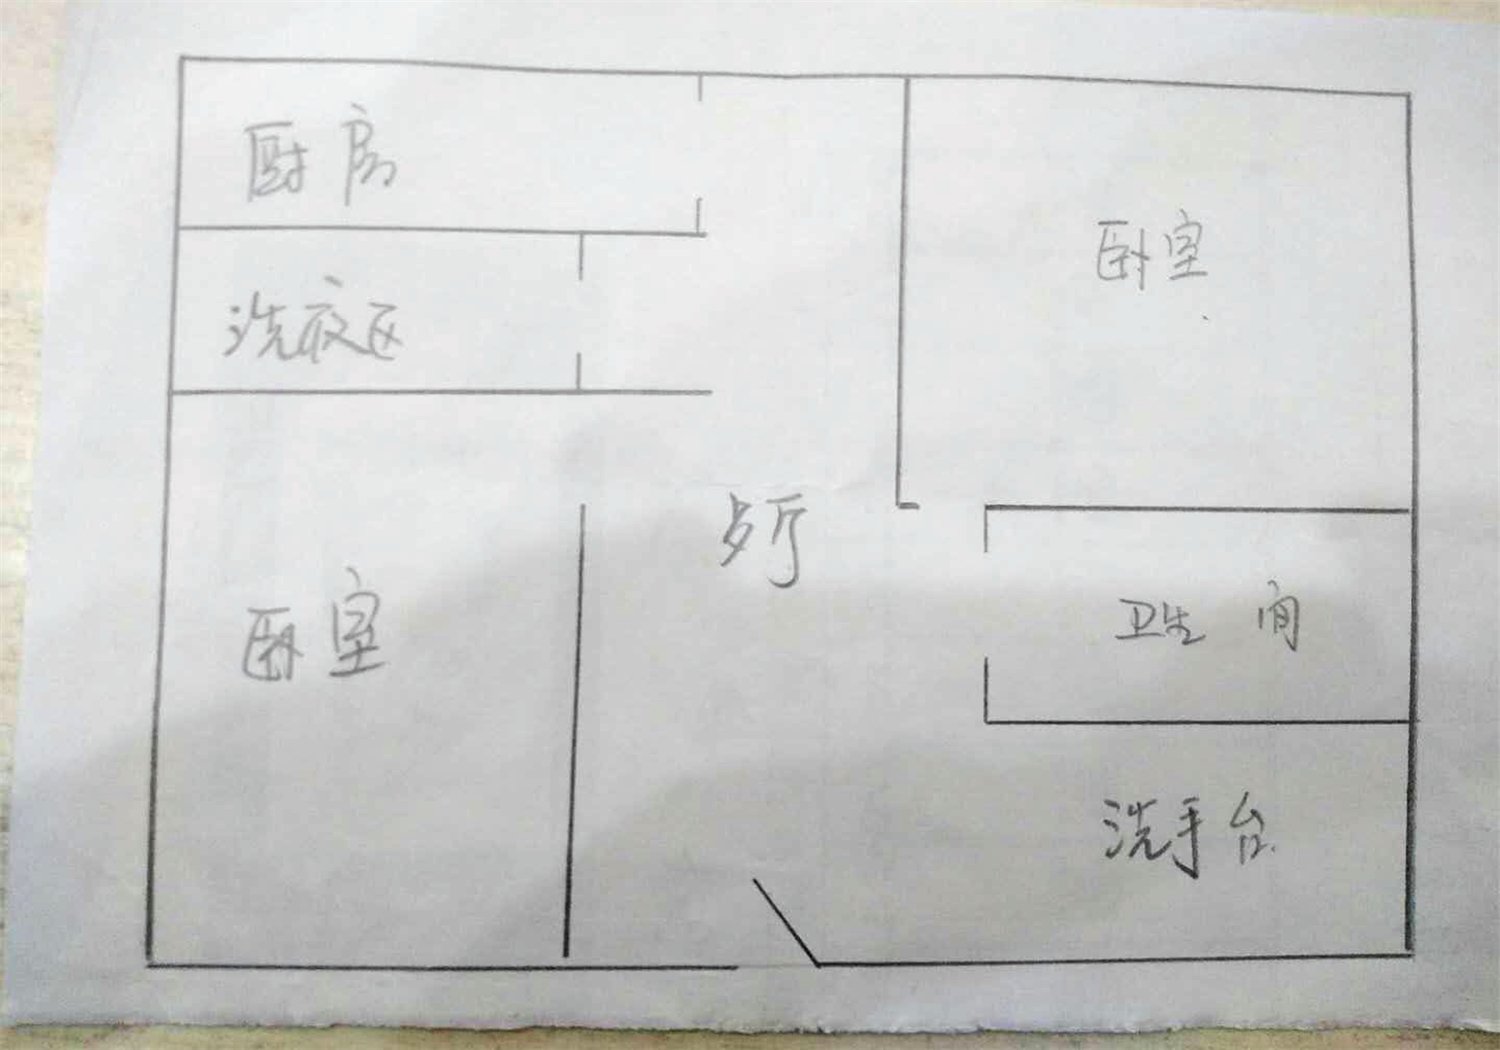 厨房
卧室
洗衣区
歺厅
卧室
卫生间
洗手台